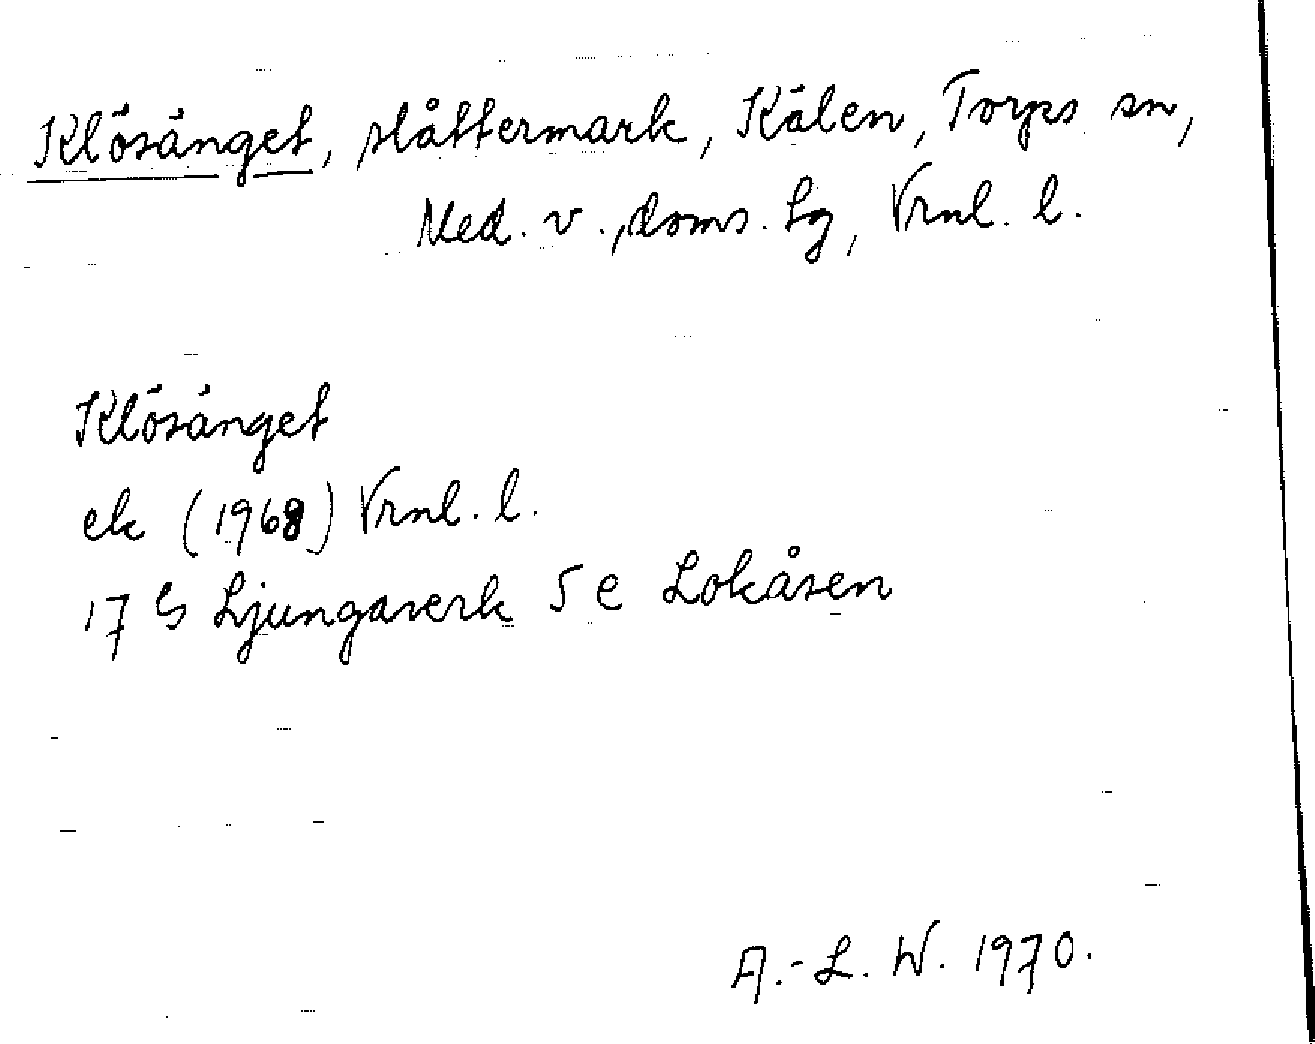 Klösänget, slåttermark, Kälen, Torps sn,
Med. v., doms. Lg, Vrnl. l.
Klösänget
ek (1968) Vrnl. l.
17 G Ljungaverk 5 e Lokåsen
A.-L. W. 1970.